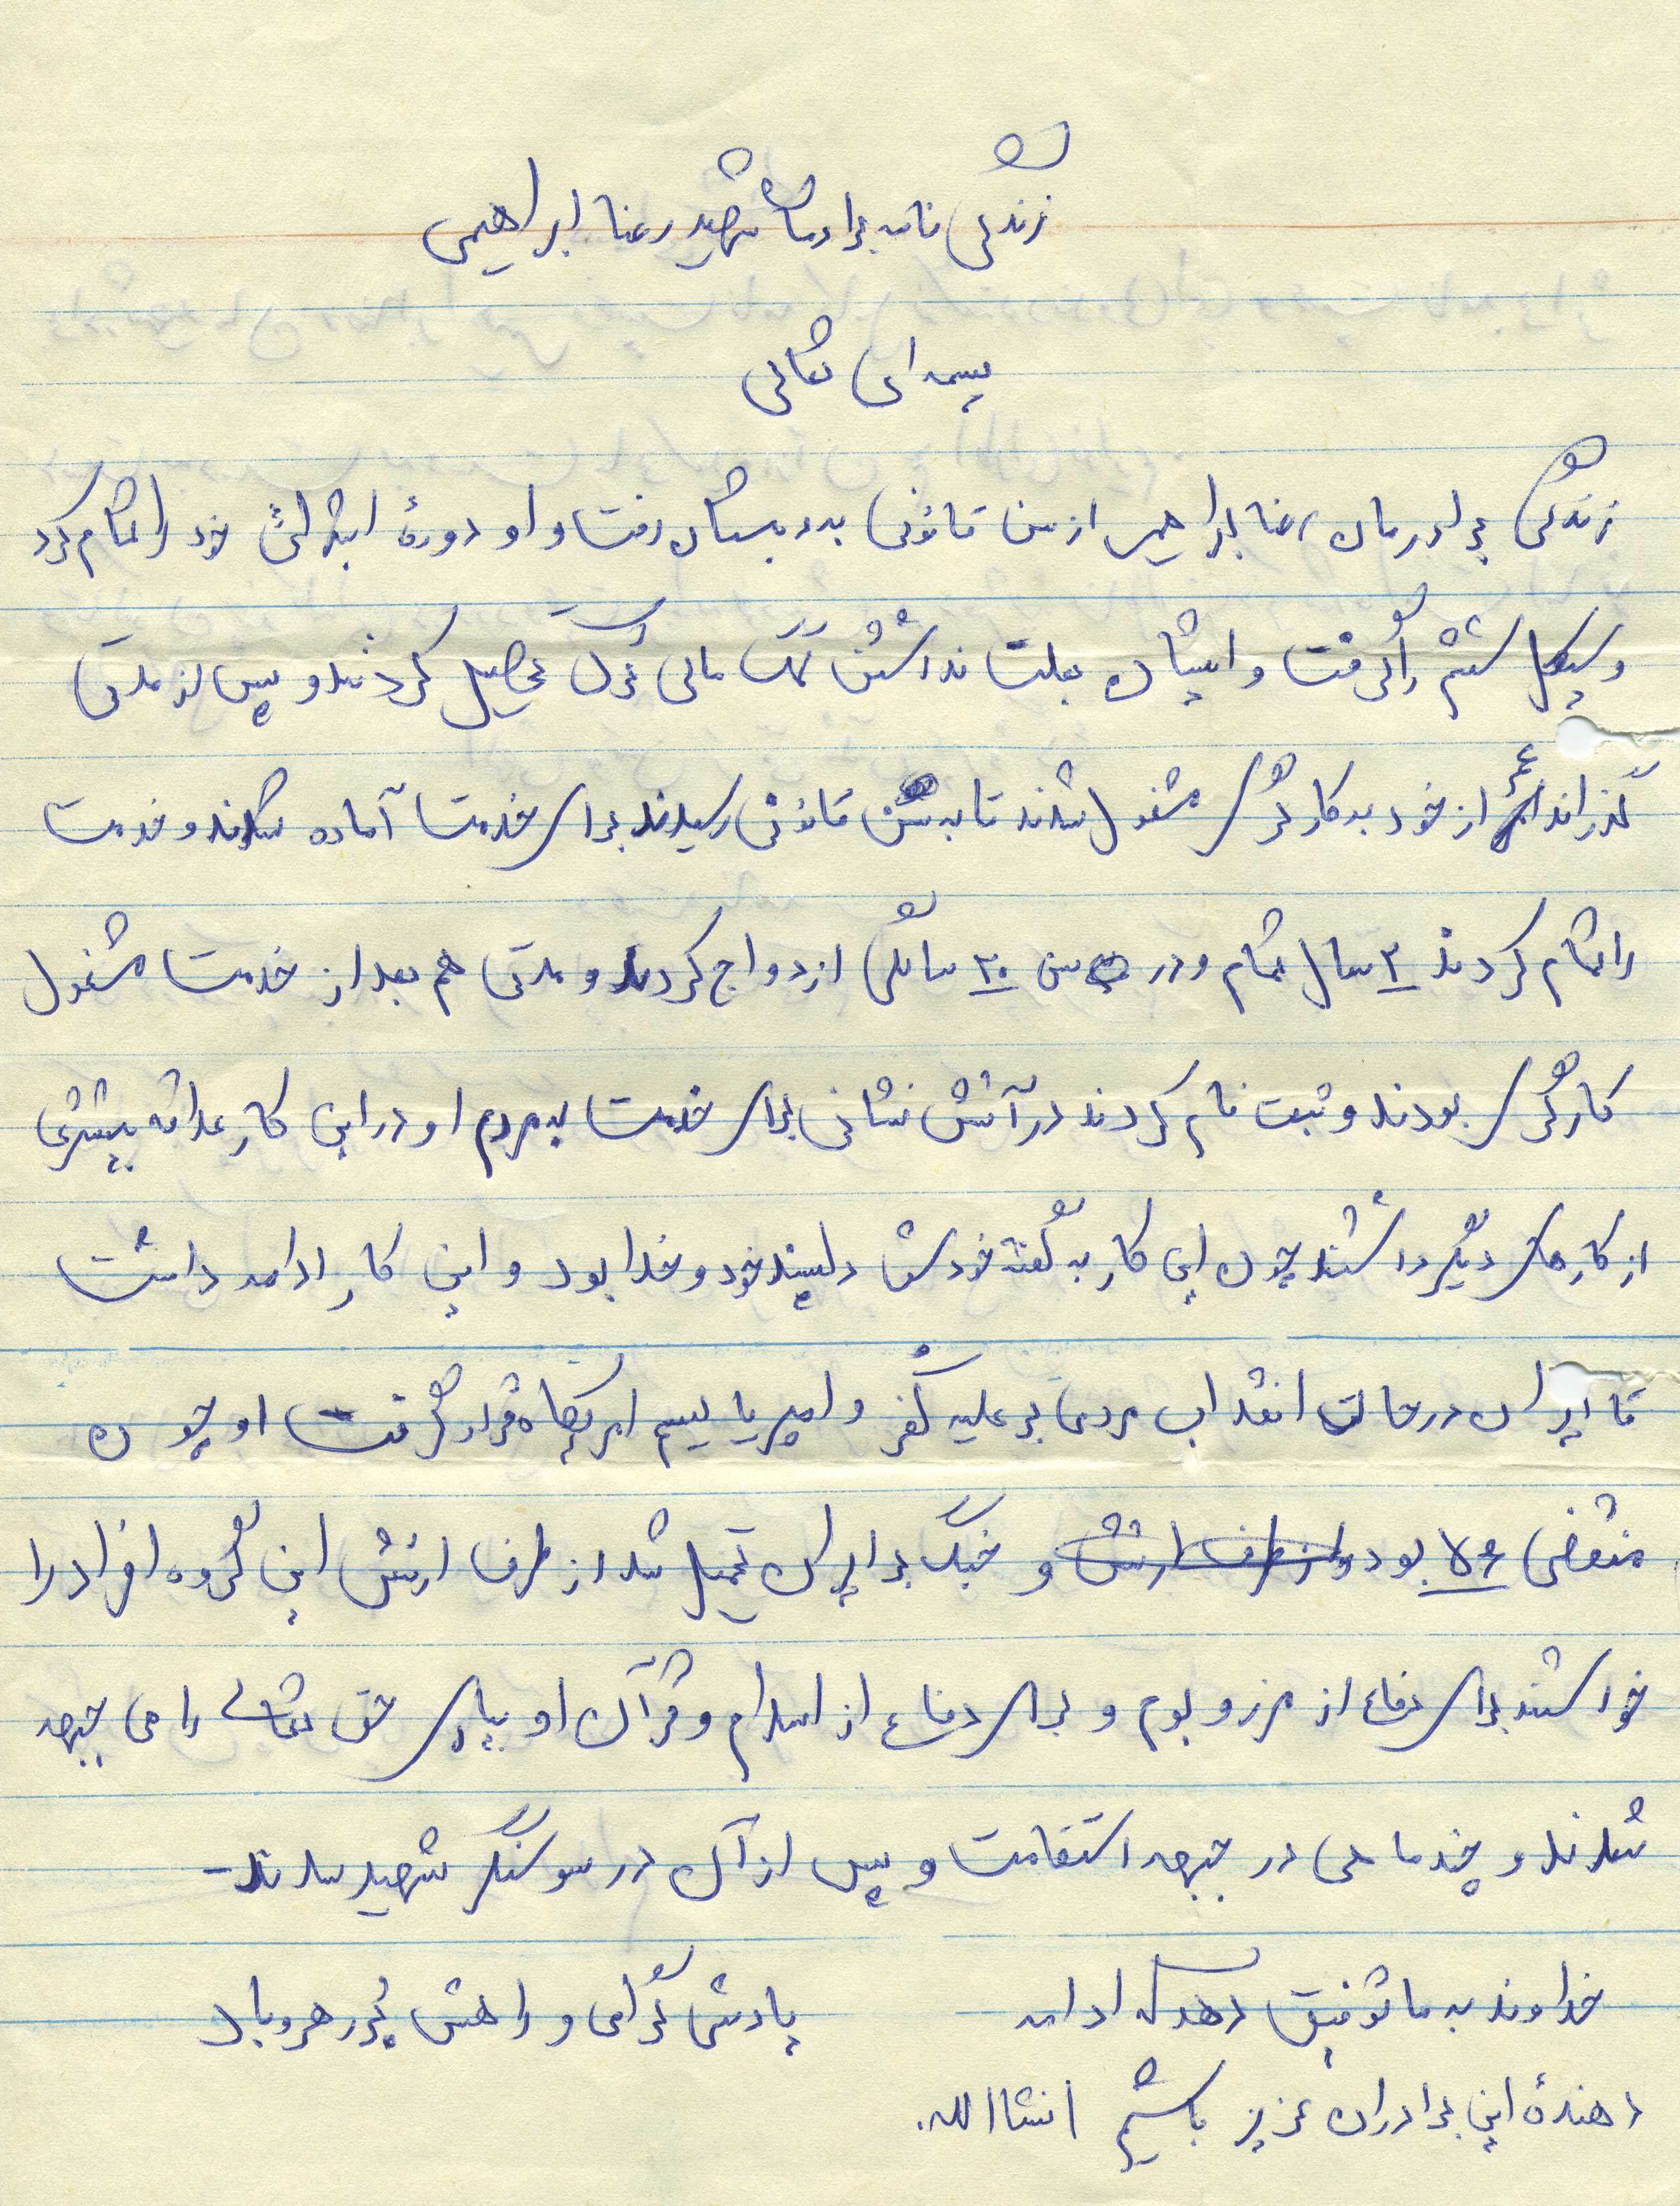 زندگی نامه برادرمان شهید رضا ابراهیمی
بسمه ای تعالی
زندگی برادرمان رضا ابراهیمی از سن قانونی به دبستان رفت و او دورهٔ ابتدائی خود را تمام کرد
و سیکل ششم را گرفت و ایشان بعلت نداشتن کمک مالی ترک تحصیل کردند و پس از مدتی
گذراندن عمر از خود به کارگری مشغول شدند تا به سن قانونی رسیدند برای خدمت آماده شدند و خدمت
را تمام کردند ۲ سال تمام و در سن ۲۰ سالگی ازدواج کردند و مدتی هم بعد از خدمت مشغول
کارگری بودند و ثبت نام کردند در آتش نشانی برای خدمت به مردم او در این کار علاقه بیشتری
از کارهای دیگر داشتند چون این کار به گفته خودش دلپسند خود و خدا بود و این کار ادامه داشت
تا ایران در حالت انقلاب مردمی بر علیه کفر و امپریالیسم امریکا قرار گرفت او چون
منقضی ۵۶ بود و از طرف ارتش و جنگ بر ایران تحمیل شد از طرف ارتش این گروه افراد را
خواستند برای دفاع از مرز و بوم و برای دفاع از اسلام و قرآن او بیاری حق تعالی راهی جبهه
شدند و چند ماهی در جبهه استقامت و پس از آن در سوسنگرد شهید شدند-
خداوند به ما توفیق دهد که ادامه
یادش گرامی و راهش پُر رهرو باد
دهندهٔ این برادران عزیز باشیم انشاالله.